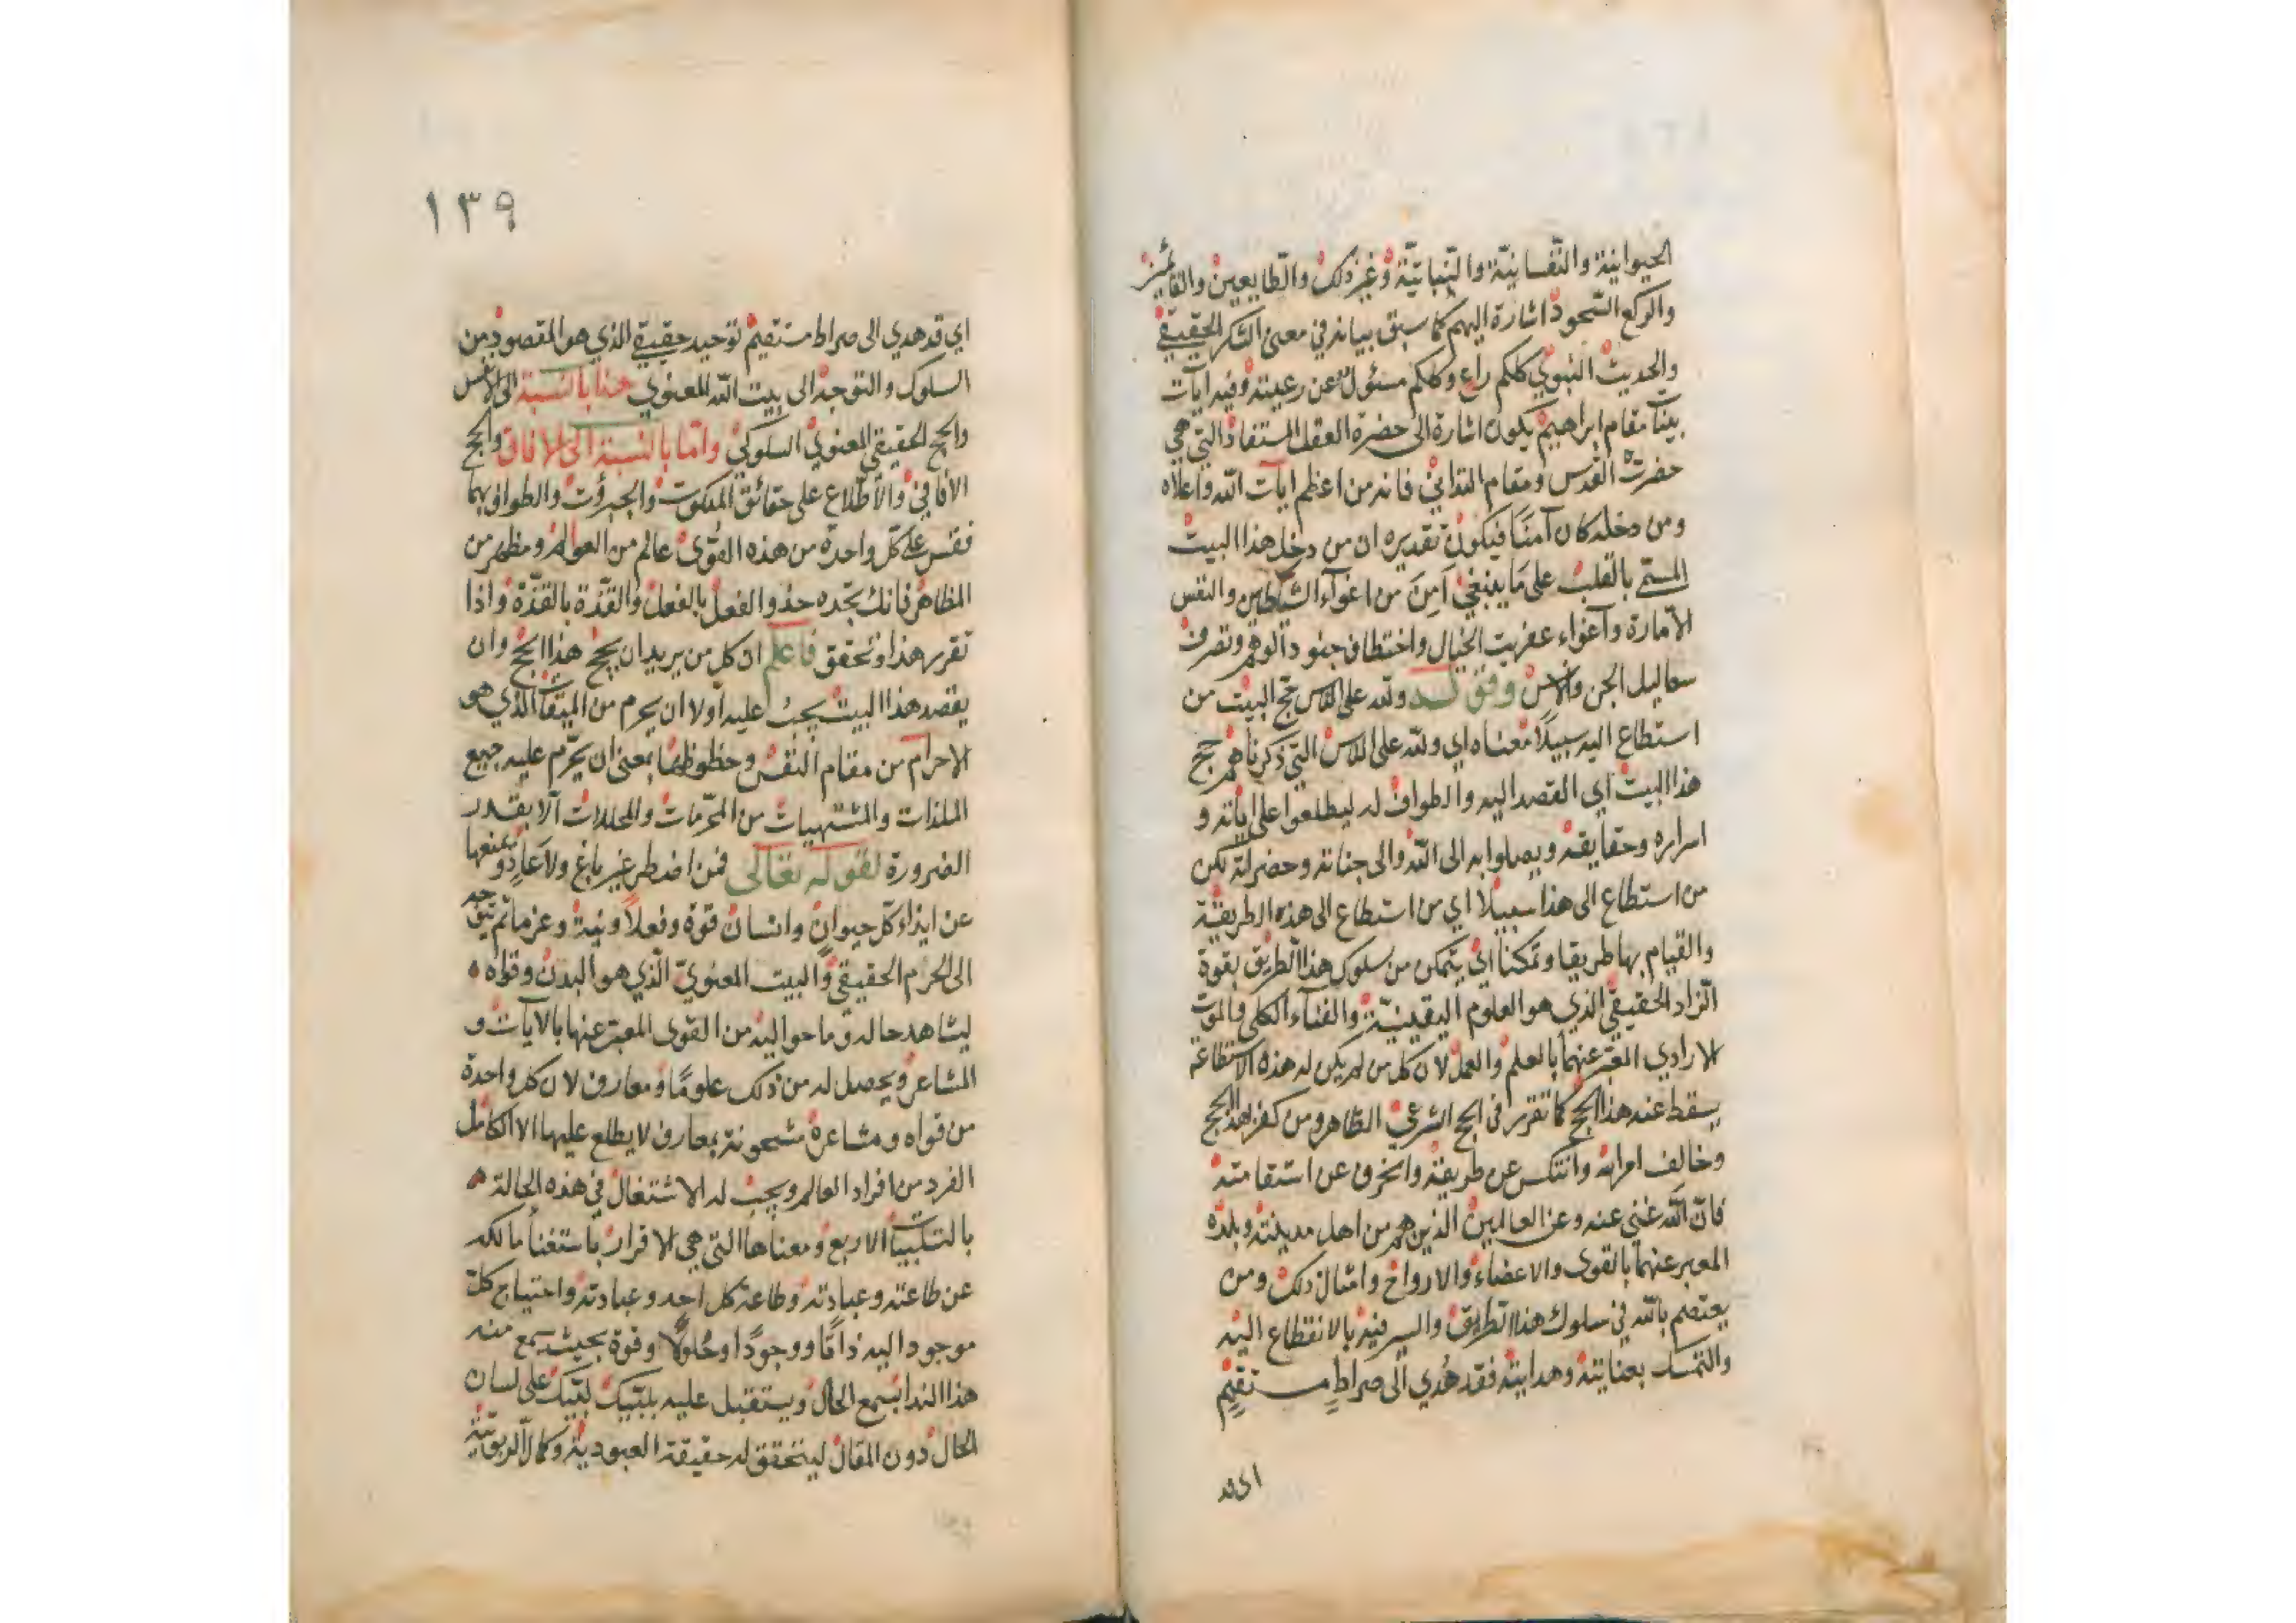 الحيوانية والنّفسانيّة والنّباتيّة وغير ذلك والطايعين والقائمين
والركع السّجود اشارة اليهم كما سبق بيانه في معنى الشكر الحقيقي
والحديث النّبوي كلكم راع وكلكم مسئول عن رعيته وفيه ايات
بينات مقام ابراهيم يكون اشارة الى حضرة العقل المستفاد التي هي
حضرت القدس ومقام التداني فانه من اعظم ايات الله واعلاه
ومن دخله كان آمنًا فيكون تقديره ان من دخل هذا البيت
المسمّى بالقلب على ما ينبغي اَمِنَ من اغواء الشياطين والنفس
الامّارة واغواء عفريت الخيال واختطاف جنود الوهم وتصرف
سعاليل الجن والانس وفق لـه ولله على الناس حج البيت من
استطاع اليه سبيلًا معناه اي ولله على الناس التي ذكرناهم حج
هذا البيت اي القصد اليه والطواف له ليطلعوا على اياته و
اسراره وحقايقه ويصلوا به الى الله والى جناته وحضراته لكن
من استطاع الى هذا سبيلا اي من استطاع الى هذه الطريقة
والقيام بها طريقا وتمكنا اي يتمكن من سلوك هذا الطريق بقوة
الزاد الحقيقي الذي هو العلوم اليقينيّة والفناء الكلي والموت
الارادي المعبّر عنهما بالعلم والعمل لان كل من لم يكن له هذه الاستطاعة
يسقط عنه هذا الحج كما تقرر في الحج الشرعي الظاهر ومن كفر بهذا الحج
وخالف امر الله وانتكس عن طريقته وانحرف عن استقامته
فانّ الله غني عنه وعن العالمين الذين هم من اهل مدينته وبلده
المعبر عنهما بالقوى والاعضاء والارواح وامثال ذلك ومن
يعتصم بالله في سلوك هذا الطريق والسير فيه بالانقطاع اليه
والتمسك بعنايته وهدايته فقد هُدي الى صراطٍ مستقيمٍ
اي قد
١٣٩
اي قد هدي الى صراط مستقيم توحيد حقيقي الذي هو المقصود من
السلوك والتوجه الى بيت الله المعنوي هذا بالنسبة الى الانفس
والحج الحقيقي المعنوي السلوكي وامّا بالنسبة الى الافاق والحج
الافاقي والاطّلاع على حقائق الملكوت والجبروت والطواف بهما
فقس على كلّ واحدة من هذه القوى عالم من العوالم ومظهر من
المظاهر فانك تجده حذو الفعل بالفعل والقذّة بالقذّة واذا
تقرر هذا وتحقق فاعلم ان كل من يريد ان يحج هذا الحج وان
يقصد هذا البيت يجب عليه اولا ان يحرم من الميقات الذي هو
الاحرام من مقام النفس وحظوظها بمعنى ان يحرّم عليه جميع
الملذات والمشتهيات من المحرّمات والمحللات الا بقدر
الضرورة لقوله تعالى فمن اضطر غير باغ ولا عاد ويمنعها
عن ايذاء كلّ حيوان وانسان قوة وفعلًا ونية وعزما ثم يتوجه
الى الحرم الحقيقي والبيت المعنويّ الّذي هو البدن وقواه
ليشاهد حاله وما حواليه من القوى المعبّر عنها بالايات و
المشاعر ويحصل له من ذلك علومًا ومعارف لان كل واحدة
من قواه ومشاعره مشحونة بمعارف لا يطلع عليها الا الكامل
الفرد من افراد العالم ويجب له الاشتغال في هذه الحالة
بالتلبيات الاربع ومعناها التي هي الاقرار باستغناء مالكه
عن طاعته وعبادته وطاعة كل احد وعبادته واحتياج كلّ
موجود اليه ذاتًا ووجودًا وحُلولًا وقوة بحيث يسمع منه
هذا الندا بسمع الحال ويستقبل عليه بلبّيك لبّيك على لسان
الحال دون المقال ليتحقق له حقيقة العبودية وكمال الربوبيّة